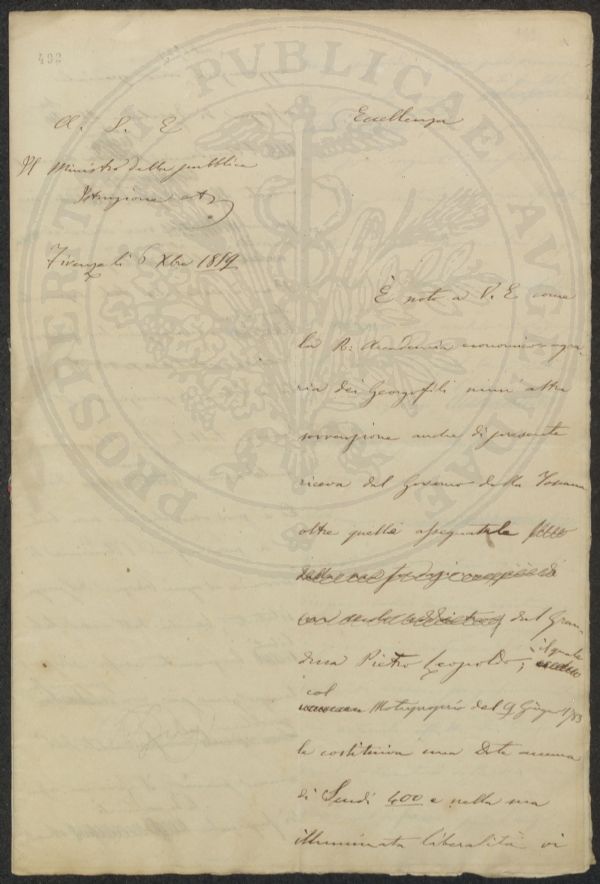 492
A. S. E
Il Ministro della pubblica
Istruzione
Firenze li 6 Xbre
Eccellenza
È noto a V. E come
la R. Accademia economico agra-
ria dei Georgofili niun' altra
sovvenzione anche di presente
riceva dal Governo della Toscana
oltre quella assegnatale
dal Gran-
duca Pietro Leopoldo, il quale
col Motuproprio del 9 Giugno 1783
le costituiva una Dote annua
di Scudi 400 e nella sua
illuminata liberalità vi
PROSPERITATI PVBLICAE AVGENDAE